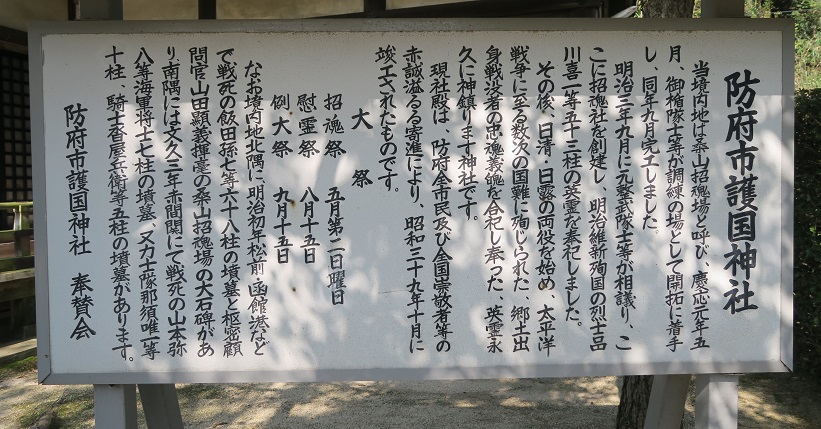 防府市護国神社
当境内地は桑山招魂場と呼び、慶応元年五
月、御楯隊士等が調練の場として開拓に着手
し、同年九月完工しました。
明治三年九月に元整武隊士等が相議り、こ
こに招魂社を創建し、明治維新殉国の烈士品
川喜一等五十三柱の英霊を奉祀しました。
その後、日清・日露の両役を始め、太平洋
戦争に至る数次の国難に殉じられた、郷土出
身戦没者の忠魂義魄を合祀し奉った、英霊永
久に神鎮ります神社です。
現社殿は、防府全市民及び全国崇敬者等の
赤誠溢るる寄進により、昭和三十九年十月に
竣工されたものです。
大祭
招魂祭 五月第二日曜日
慰霊祭 八月十五日
例大祭 九月十五日
なお境内地北隅に、明治初年松前、函館港など
で戦死の飯田孫七等六十八柱の墳墓と枢密顧
問官山田顕義揮毫の桑山招魂場の大石碑があ
り、南隅には文久三年赤間関にて戦死の山本弥
八等海軍将士七柱の墳墓、又力士隊那須唯一等
十柱、騎士登屋兵衛等五柱の墳墓があります。
防府市護国神社 奉賛会